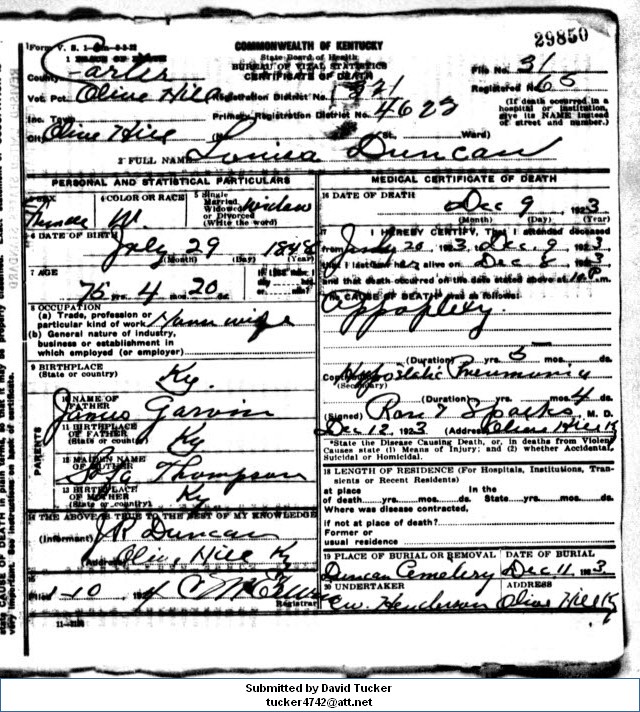 29850
Form V. S. 1
COMMONWEALTH OF KENTUCKY
State Board of Health
BUREAU OF VITAL STATISTICS
CERTIFICATE OF DEATH
1 PLACE OF DEATH
County Carter
File No. 31
Vot. Pct. Olive Hill Registration District No. 1321
Registered No. 65
Inc. Town Primary Registration District No. 4623
(If death occurred in a hospital or institution, give its NAME instead of street and number.)
City Olive Hill (No. St. Ward)
2 FULL NAME Louisa Duncan
PERSONAL AND STATISTICAL PARTICULARS
3 SEX Female
4 COLOR OR RACE W.
5 Single Married Widowed or Divorced (Write the word) Widow
6 DATE OF BIRTH July 29 1848
(Month) (Day) (Year)
7 AGE
75 yrs. 4 mos. 20 ds.
8 OCCUPATION
(a) Trade, profession or
particular kind of work
(b) General nature of industry,
business or establishment in
which employed (or employer)
9 BIRTHPLACE
(State or country) Ky.
PARENTS
10 NAME OF FATHER James Garvin
11 BIRTHPLACE OF FATHER
(State or country) Ky
12 MAIDEN NAME OF MOTHER Thompson
13 BIRTHPLACE OF MOTHER
(State or country) Ky
14 THE ABOVE IS TRUE TO THE BEST OF MY KNOWLEDGE
(Informant) J R Duncan
(Address) Olive Hill Ky
15
Filed 1-10 1924
Registrar
MEDICAL CERTIFICATE OF DEATH
16 DATE OF DEATH
Dec 9 1923
(Month) (Day) (Year)
17 I HEREBY CERTIFY, That I attended deceased
from 1923, Dec. 9 1923
that I last saw her alive on Dec 8 1923
and that death occurred on the date stated above at 10 P. m.
The CAUSE OF DEATH was as follows:
Appoplexy
(Duration) yrs. 5 mos. ds.
Contributory Hypostatic Pneumonia
(Secondary)
(Duration) yrs. mos. 4 ds.
(Signed) Sparks M. D.
Dec 12, 1923 (Address) Olive Hill Ky
*State the Disease Causing Death, or, in deaths from Violent
Causes state (1) Means of Injury; and (2) whether Accidental,
Suicidal or Homicidal.
18 LENGTH OF RESIDENCE (For Hospitals, Institutions, Tran-
sients or Recent Residents)
at place In the
of death yrs. mos. ds. State yrs. mos. ds.
Where was disease contracted,
if not at place of death?
Former or
usual residence
19 PLACE OF BURIAL OR REMOVAL DATE OF BURIAL
Duncan Cemetery Dec 11 1923
20 UNDERTAKER ADDRESS
C.W. Henderson Olive Hill Ky
Submitted by David Tucker
tucker4742@att.net